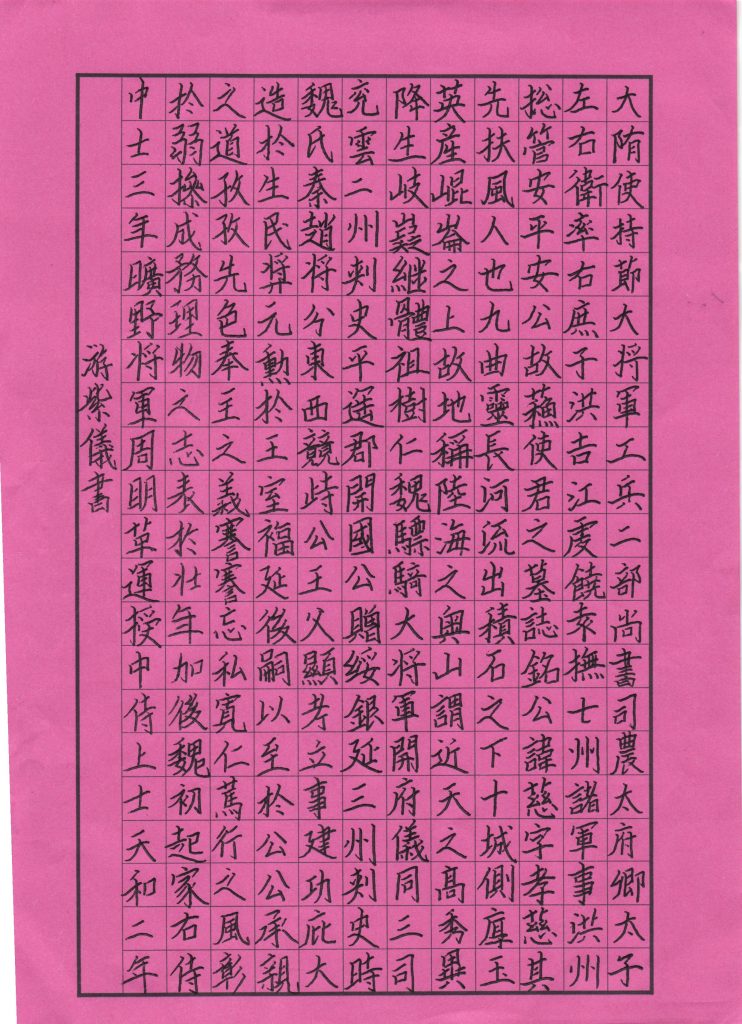 大陏使持節大将軍工兵二部尚書司農太府卿太子
左右衛率右庶子洪吉江虔饒袁撫七州諸軍事洪州
捴管安平安公故蘓使君之墓誌銘公諱慈字孝慈其
先扶風人也九曲靈長河流出積石之下十城側厚玉
英産崐崙之上故地稱陸海之奥山謂近天之髙秀異
降生岐嶷継體祖樹仁魏驃騎大将軍開府儀同三司
兖雲二州刺史平遥郡開國公贈綏銀延三州刺史時
魏氏秦趙将分東西競峙公王父顯考立事建功庇大
造於生民奨元勲於王室福延後嗣以至於公公承親
之道孜孜先色奉主之義謇謇忘私寛仁篤行之風彰
於弱操成務理物之志表於壮年加後魏初起家右侍
中士三年曠野将軍周明革運授中侍上士天和二年
游紫儀書